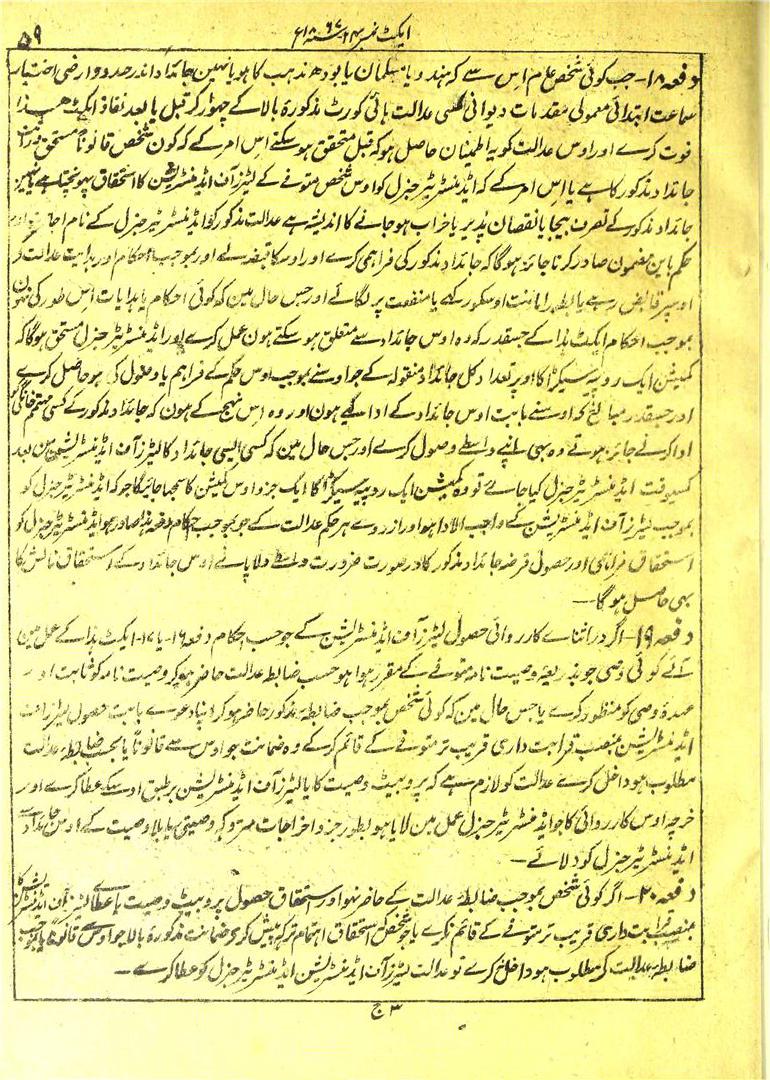 ایکٹ نمبر ۲۴ سنہ ۱۸۶۷ء
۵۹
دفعہ ۱۸ - جب کوئی شخص عام اس سے کہ ہندو یا مسلمان یا بودھ مذہب کا ہو یا نہین جائداد اندر حدود ارضی اختیار
سماعت ابتدائی معمولی مقدمات دیوانی کسی عدالت ہائی کورٹ مذکورۂ بالا کے چھوڑ کر قبل یا بعد نفاذ ایکٹ ھذا
فوت کرے اور اوس عدالت کو یہ اطمینان حاصل ہو کہ قبل متحقق ہو سکنے اس امر کے کہ کون شخص قانوناً مستحق وراثت
جائداد مذکور کا ہے یا اس امر کے کہ ایڈمنسٹریٹر جنرل کو اوس شخص متوفے کے لیٹرز آف ایڈمنسٹریشن کا استحقاق پہونچتا ہے یا نہین
جائداد مذکور کے تصرف بیجا یا نقصان پذیر یا خراب ہو جانے کا اندیشہ ہے عدالت مذکور کو ایڈمنسٹریٹر جنرل کے نام اجازت اور
حکم باین مضمون صادر کرنا جائز ہوگا کہ جائداد مذکور کی فراہمی کرے اور اوسکا قبضہ لے اور بموجب احکام اور ہدایت عدالت کے
اوسپر قابض رہے یا بطور امانت اوسکو رکھے یا منفعت پر لگائے اور جس حال مین کہ کوئی احکام یا ہدایات اس طور کی نہون
بموجب احکام ایکٹ ہذا کے جسقدر کہ وہ اوس جائداد سے متعلق ہو سکتے ہون عمل کرے اور ایڈمنسٹریٹر جنرل مستحق ہوگا کہ
کمیشن ایک روپیہ سیکڑا کا اوپر تعداد کل جائداد منقولہ کے جو اوسنے بموجب اوس حکم کے فراہم یا وصول کی ہو حاصل کرے
اور جسقدر مبالغ کہ اوسنے بابت اوس جائداد کے ادا کیے ہون اور وہ اس نہج کے ہون کہ جائداد مذکور کے کسی مہتمم خانگی کو
ادا کرنے جائز ہوتے وہ بھی اپنے واسطے وصول کرے اور جس حال مین کہ کسی ایسی جائداد کا لیٹرز آف ایڈمنسٹریشن من بعد
کسیوقت ایڈمنسٹریٹر جنرل کیا جائے تو وہ کمیشن ایک روپیہ سیکڑا کا ایک جزو اوس کمیشن کا سمجھا جائیگا جو کہ ایڈمنسٹریٹر جنرل کو
بموجب لیٹرز آف ایڈمنسٹریشن کے واجب الادا ہو اور ازروے ہر حکم عدالت کے جو بموجب احکام دفعہ ہذا صادر ہو ایڈمنسٹریٹر جنرل کو
استحقاق فراہمی اور حصول قرضہ جائداد مذکور کا در صورت ضرورت واسطے دلا پانے اوس جائداد کے استحقاق نالش کا
بھی حاصل ہوگا —
دفعہ ۱۹ - اگر در اثناے کارروائی حصول لیٹرز آف ایڈمنسٹریشن کے جو حسب احکام دفعہ ۱۶ یا ۱۷ ایکٹ ہذا کے عمل مین
آئے کوئی وصی جو بذریعہ وصیت نامہ متوفے کے مقرر ہوا ہو حسب ضابطہ عدالت حاضر ہو کر وصیت نامہ کو ثابت اور
عہدۂ وصی کو منظور کرے یا جس حال مین کہ کوئی شخص بموجب ضابطہ مذکور حاضر ہو کر اپنا دعوے بابت حصول لیٹرز آف
ایڈمنسٹریشن بمنصب قرابت داری قریب تر متوفے کے قائم کر کے وہ ضمانت جو اوس سے قانوناً یا بحسب ضابطہ عدالت
مطلوب ہو داخل کرے عدالت کو لازم ہے کہ پروبیٹ وصیت کا یا لیٹرز آف ایڈمنسٹریشن برطبق اوسکے عطا کرے اور
خرچہ اوس کارروائی کا جو ایڈمنسٹریٹر جنرل عمل مین لایا ہو بطور جزو اخراجات متروکہ وصیتی یا بلا وصیت کے اوس جائداد سے
ایڈمنسٹریٹر جنرل کو دلائے —
دفعہ ۲۰ - اگر کوئی شخص بموجب ضابطہ عدالت کے حاضر نہو اور استحقاق حصول پروبیٹ وصیت یا عطاے لیٹرز آف ایڈمنسٹریشن کا
بمنصب قرابت داری قریب تر متوفے کے قائم نکرے یا جو شخص کہ استحقاق اہتمام ترکہ پیش کرے ضمانت مذکورۂ بالا جو اوس سے قانوناً یا بموجب
ضابطہ عدالت کے مطلوب ہو داخل نکرے تو عدالت لیٹرز آف ایڈمنسٹریشن ایڈمنسٹریٹر جنرل کو عطا کرے —
۳ ج